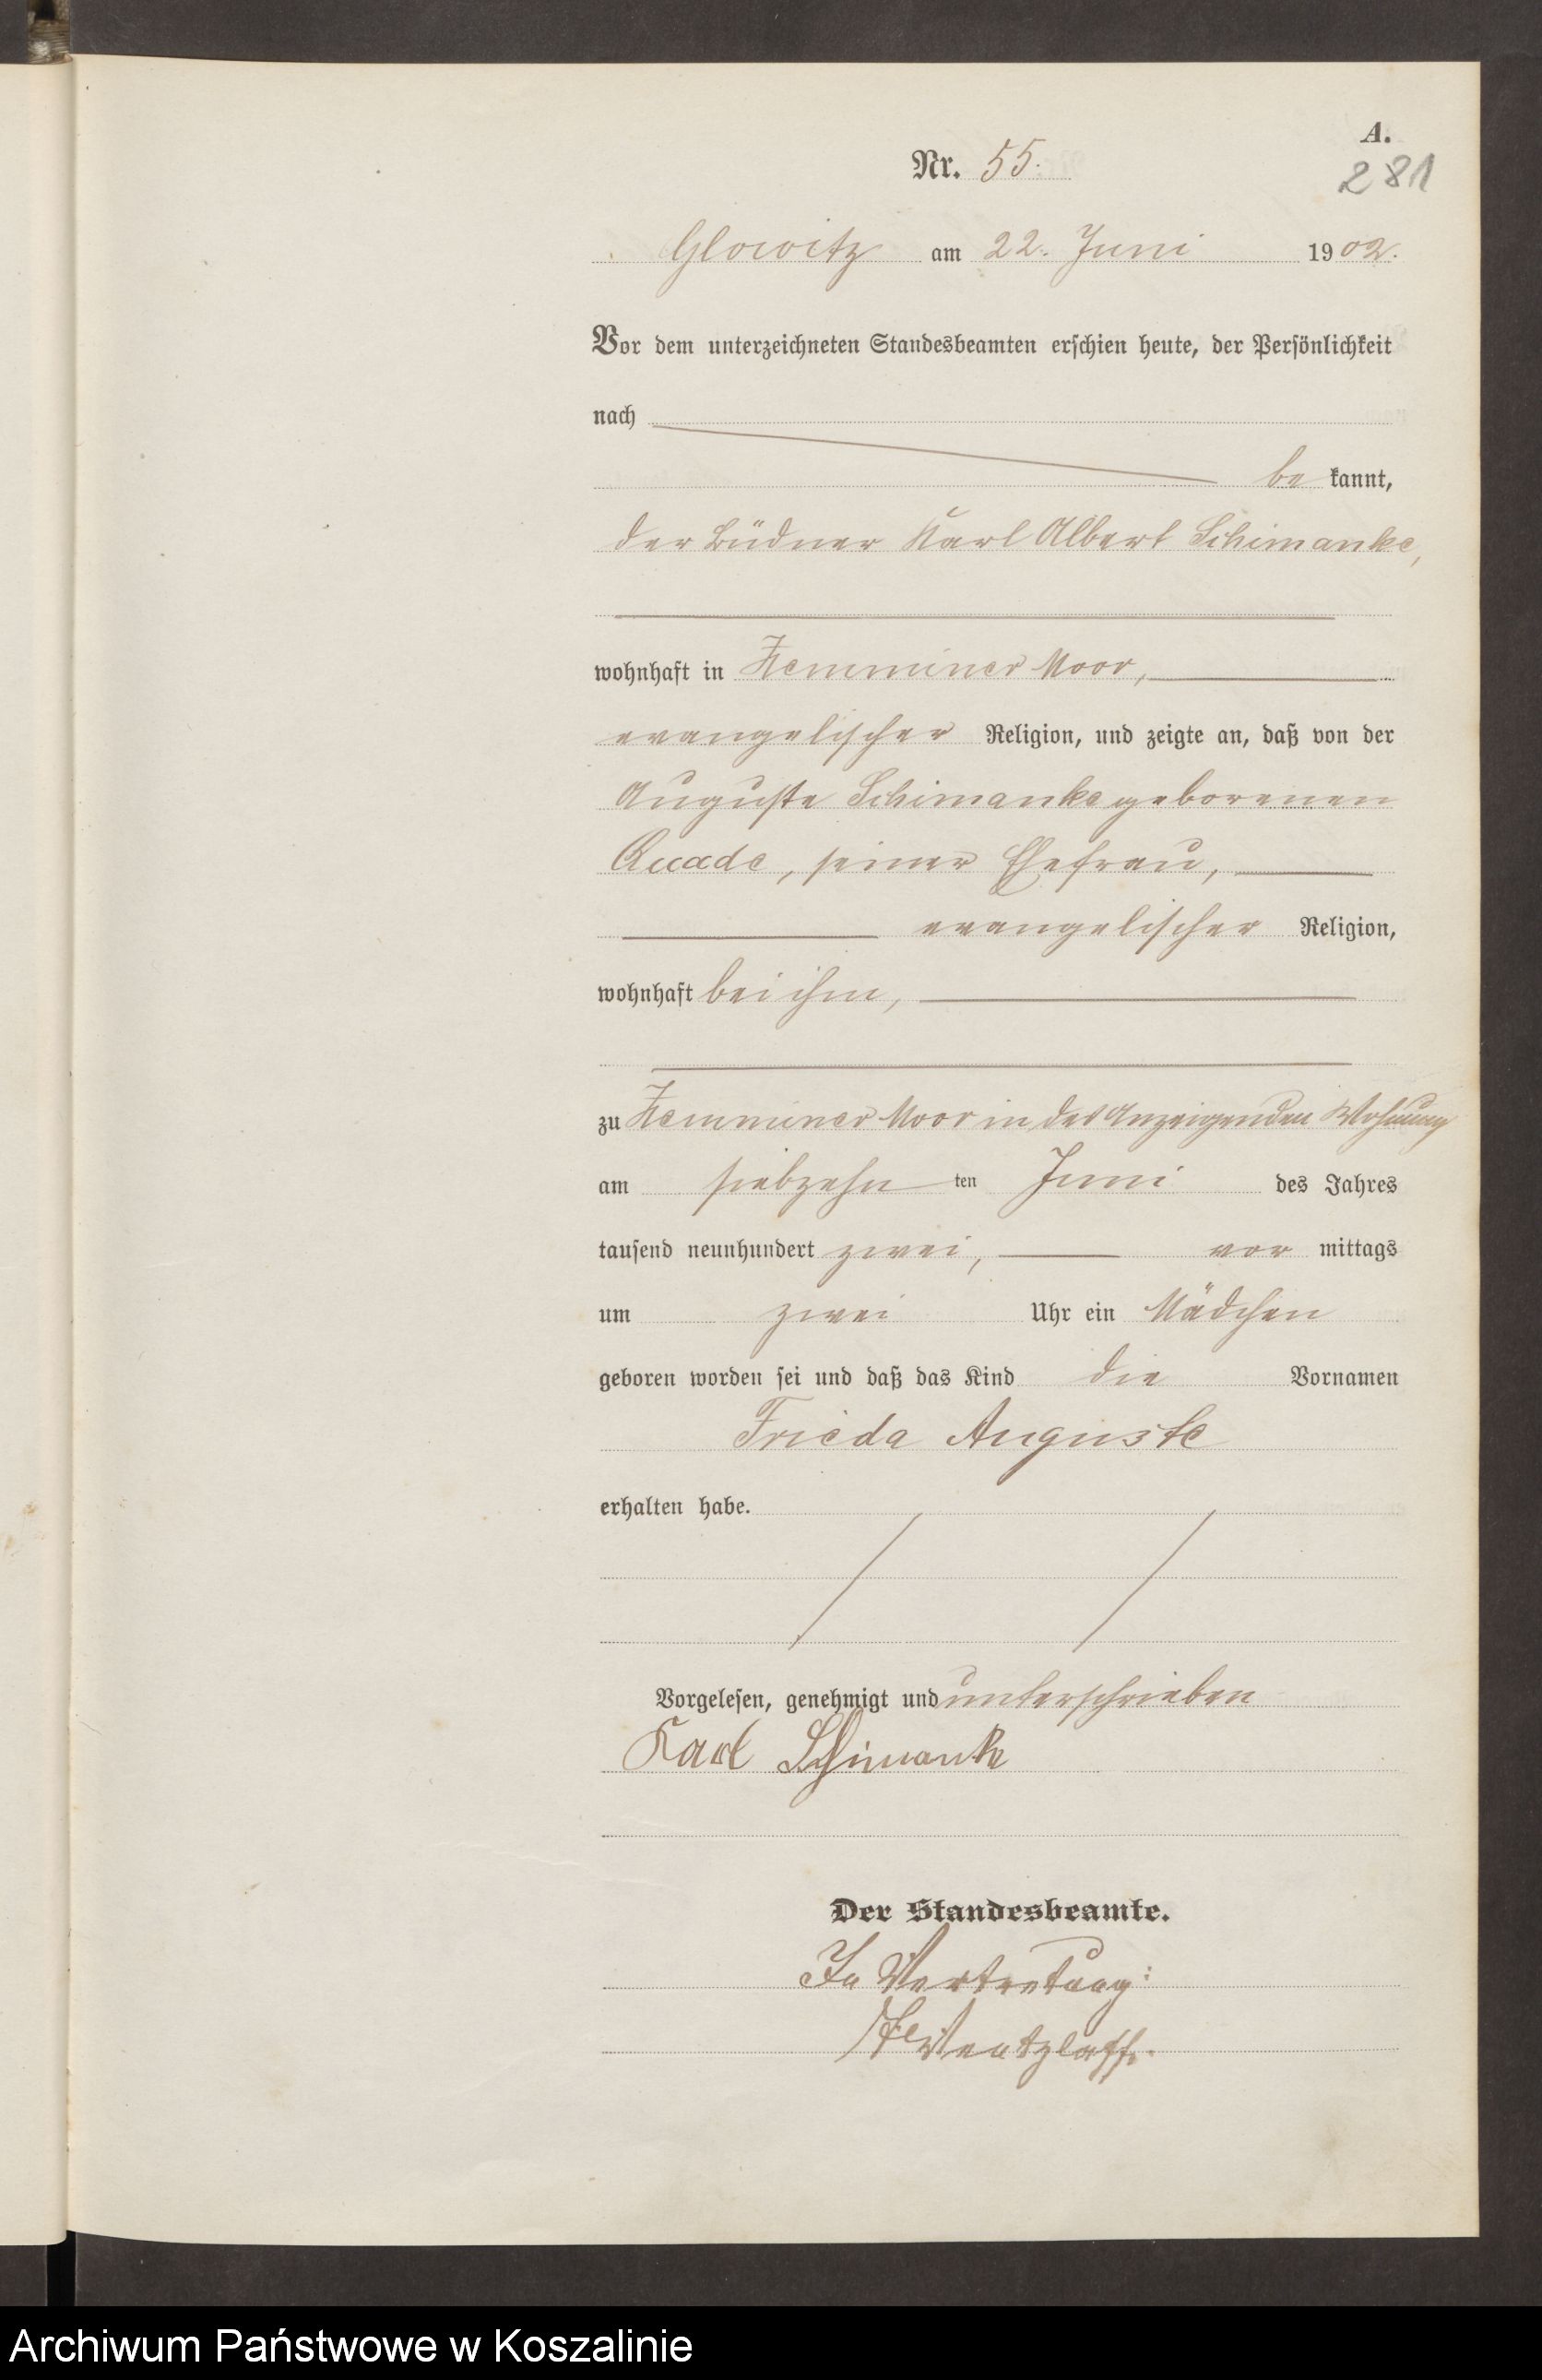 A.
Nr. 55.
281
Glowitz am 22. Juni 1902.
Vor dem unterzeichneten Standesbeamten erschien heute, der Persönlichkeit
nach
be kannt,
der Büdner Karl Albert Schimanke,
wohnhaft in Zemminer Moor,
evangelischer Religion, und zeigte an, daß von der
Auguste Schimanke geborenen
Quade, seiner Ehefrau,
evangelischer Religion,
wohnhaft bei ihm,
zu Zemminer Moor in des Anzeigenden Wohnung
am siebzehn ten Juni des Jahres
tausend neunhundert zwei, vor mittags
um zwei Uhr ein Mädchen
geboren worden sei und daß das Kind die Vornamen
Frieda Auguste
erhalten habe.
Vorgelesen, genehmigt und unterschrieben
Karl Schimank
Der Standesbeamte.
In Vertretung:
Wentzlaff.
Archiwum Państwowe w Koszalinie